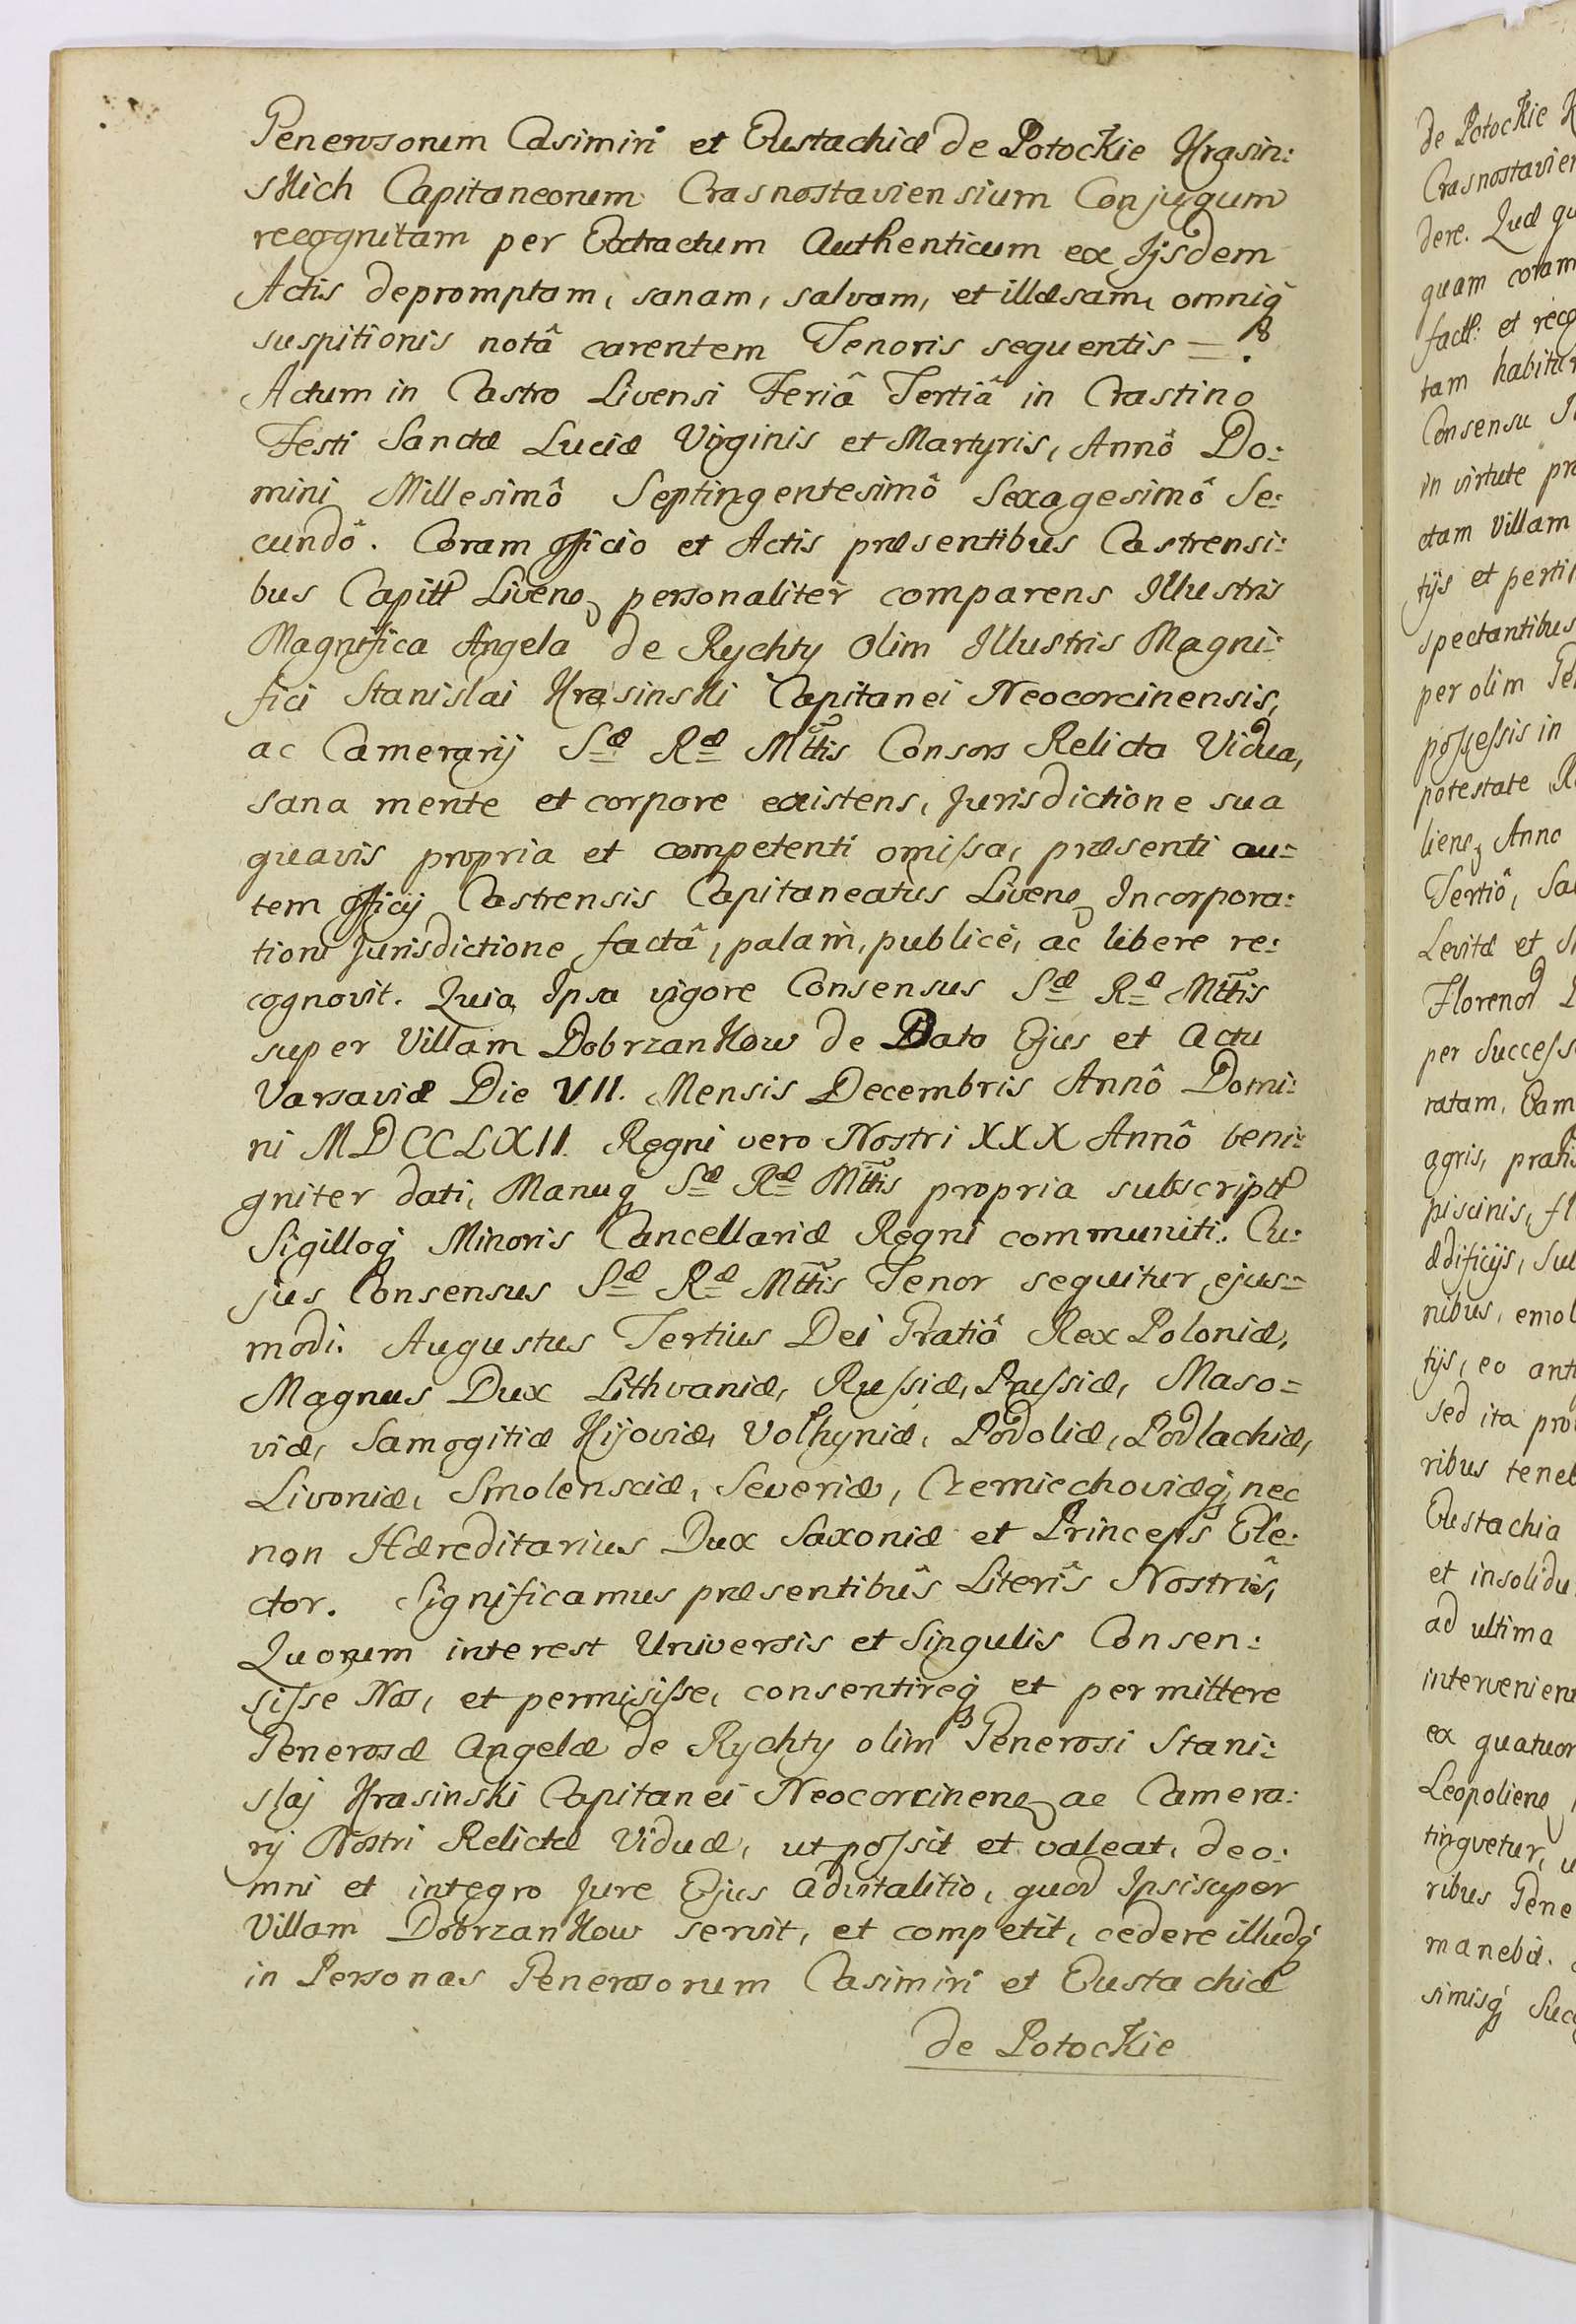 Generosorum Casimiri et Eustachiæ de Potockie Krasin:
skich Capitaneorum Crasnostaviensium Conjugum
recognitam per Extractum Authenticum ex Ijsdem
Actis depromptam, sanam, salvam, et illæsam, omniq́
suspitionis notâ carentem Tenoris sequentis =
Actum in Castro Livensi Feriâ Tertiâ in Crastino
Festi Sanctæ Luciæ Virginis et Martyris, Annô Do:
mini Millesimô Septingentesimô Sexagesimô Se:
cundô. Coram Officio et Actis præsentibus Castrensi:
bus Capitł Livenę personaliter comparens Illustris
Magnifica Angela de Rychty olim Illustris Magni:
fici Stanislai Krasinski Capitanei Neocorcinensis,
ac Camerarij Sæ Ræ Mttis Consors Relicta Vidua,
sana mente et corpore existens, Jurisdictione sua
quavis propria et competenti omissa, præsenti au=
tem Officij Castrensis Capitaneatûs Livenę Incorpora:
tione Jurisdictione factâ, palam, publicè, ac libere re:
cognovit. Quia Ipsa vigore Consensus Sæ Ræ Mttis
super Villam Dobrzankow de Dato Ejus et Actu
Varsaviæ Die VII. Mensis Decembris Annô Domi:
ni MDCCLXII. Regni vero Nostri XXX Annô beni:
gniter dati, Manuq́ Sæ Ræ Mttis propria subscriptł
Sigilloq́ Minoris Cancellariæ Regni communiti. Cu:
jus Consensus Sæ Ræ Mttis Tenor sequitur ejus=
modi. Augustus Tertius Dei Gratiâ Rex Poloniæ,
Magnus Dux Lithvaniæ, Russiæ, Prussiæ, Maso=
viæ, Samogitiæ Kijoviæ, Volhyniæ, Podoliæ, Podlachiæ,
Livoniæ, Smolensciæ, Severiæ, Czerniechoviæq́, nec
non Hæreditarius Dux Saxoniæ et Princeps Ele:
ctor. Significamus præsentibûs Literîs Nostrîs,
Quorum interest Universis et Singulis Consen:
sisse Nos, et permisisse, consentireq́ et permittere
Generosæ Angelæ de Rychty olim Generosi Stani:
slaj Krasinski Capitanei Neocorcinenę ac Camera:
rij Nostri Relictæ Viduæ, ut possit et valeat, de o:
mni et integro Jure Ejus advitalitio, quod Ipsi super
Villam Dobrzankow servit, et competit, cedere illudq́
in Personas Generosorum Casimiri et Eustachiæ
de Potockie
de Potockie
Crasnostavien
dere. Quæ
quam coram
factł: et
tam
Consensu
in virtute
ctam Villam
tijs et
spectantibus
per olim
possessis in
potestate
lienę Anno
Tertiô,
Levitæ et
Floreno
per
ratam,
agris,
piscinis,
ædificijs,
nibus,
tijs, eo
sed ita
ribus
Eustachia
et
ad ultima
ex quatuor
Leopolienę
tingvetur,
ribus
manebit.
simisq́